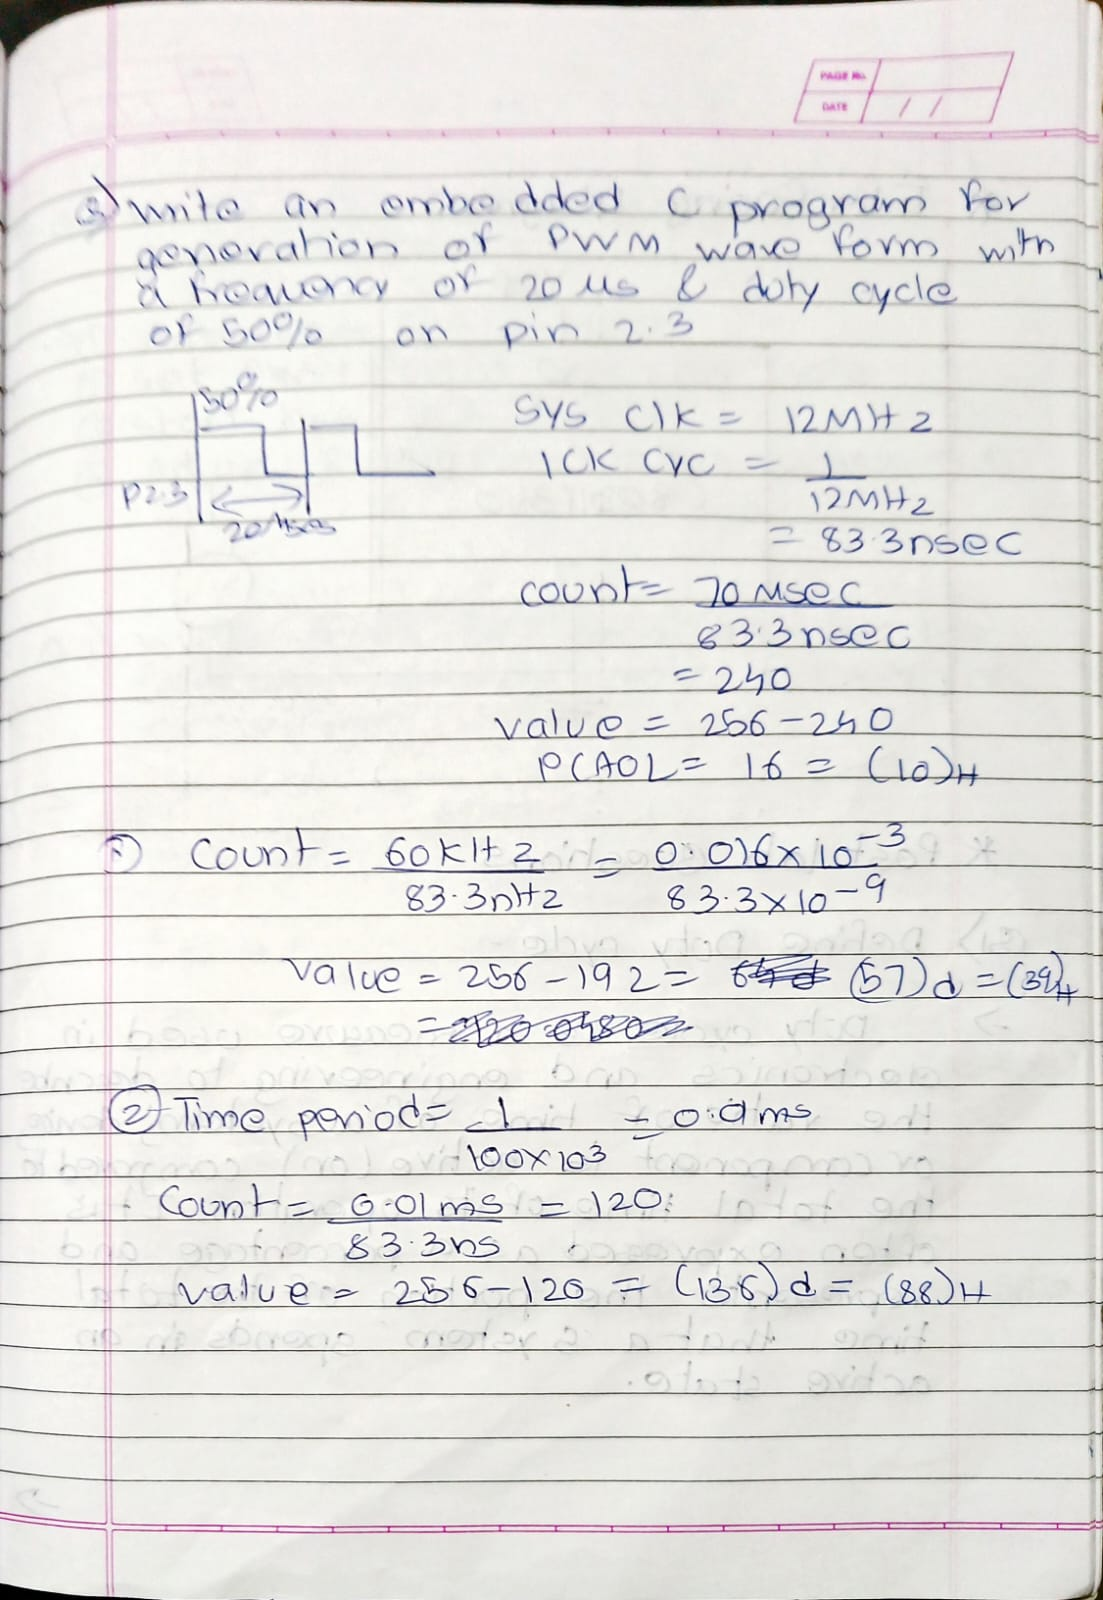 PAGE No.
DATE / /
3) Write an embedded C program for
generation of PWM wave form with
a frequency of 20 us & duty cycle
of 50% on pin 2.3
50%
P2.3
20 usec
SYS Clk = 12MHz
1CK CYC = 1
12MHz
= 83.3nsec
count = 20 usec
83.3nsec
= 240
value = 256-240
PCA0L = 16 = (10)H
1) Count = 60KHz = 0.016x10-3
83.3nHz 83.3x10-9
value = 256-192 = (57)d = (39)H
2) Time period = 1 = 0.01ms
100x103
Count = 0.01ms = 120.
83.3ns
value = 256-120 = (136)d = (88)H